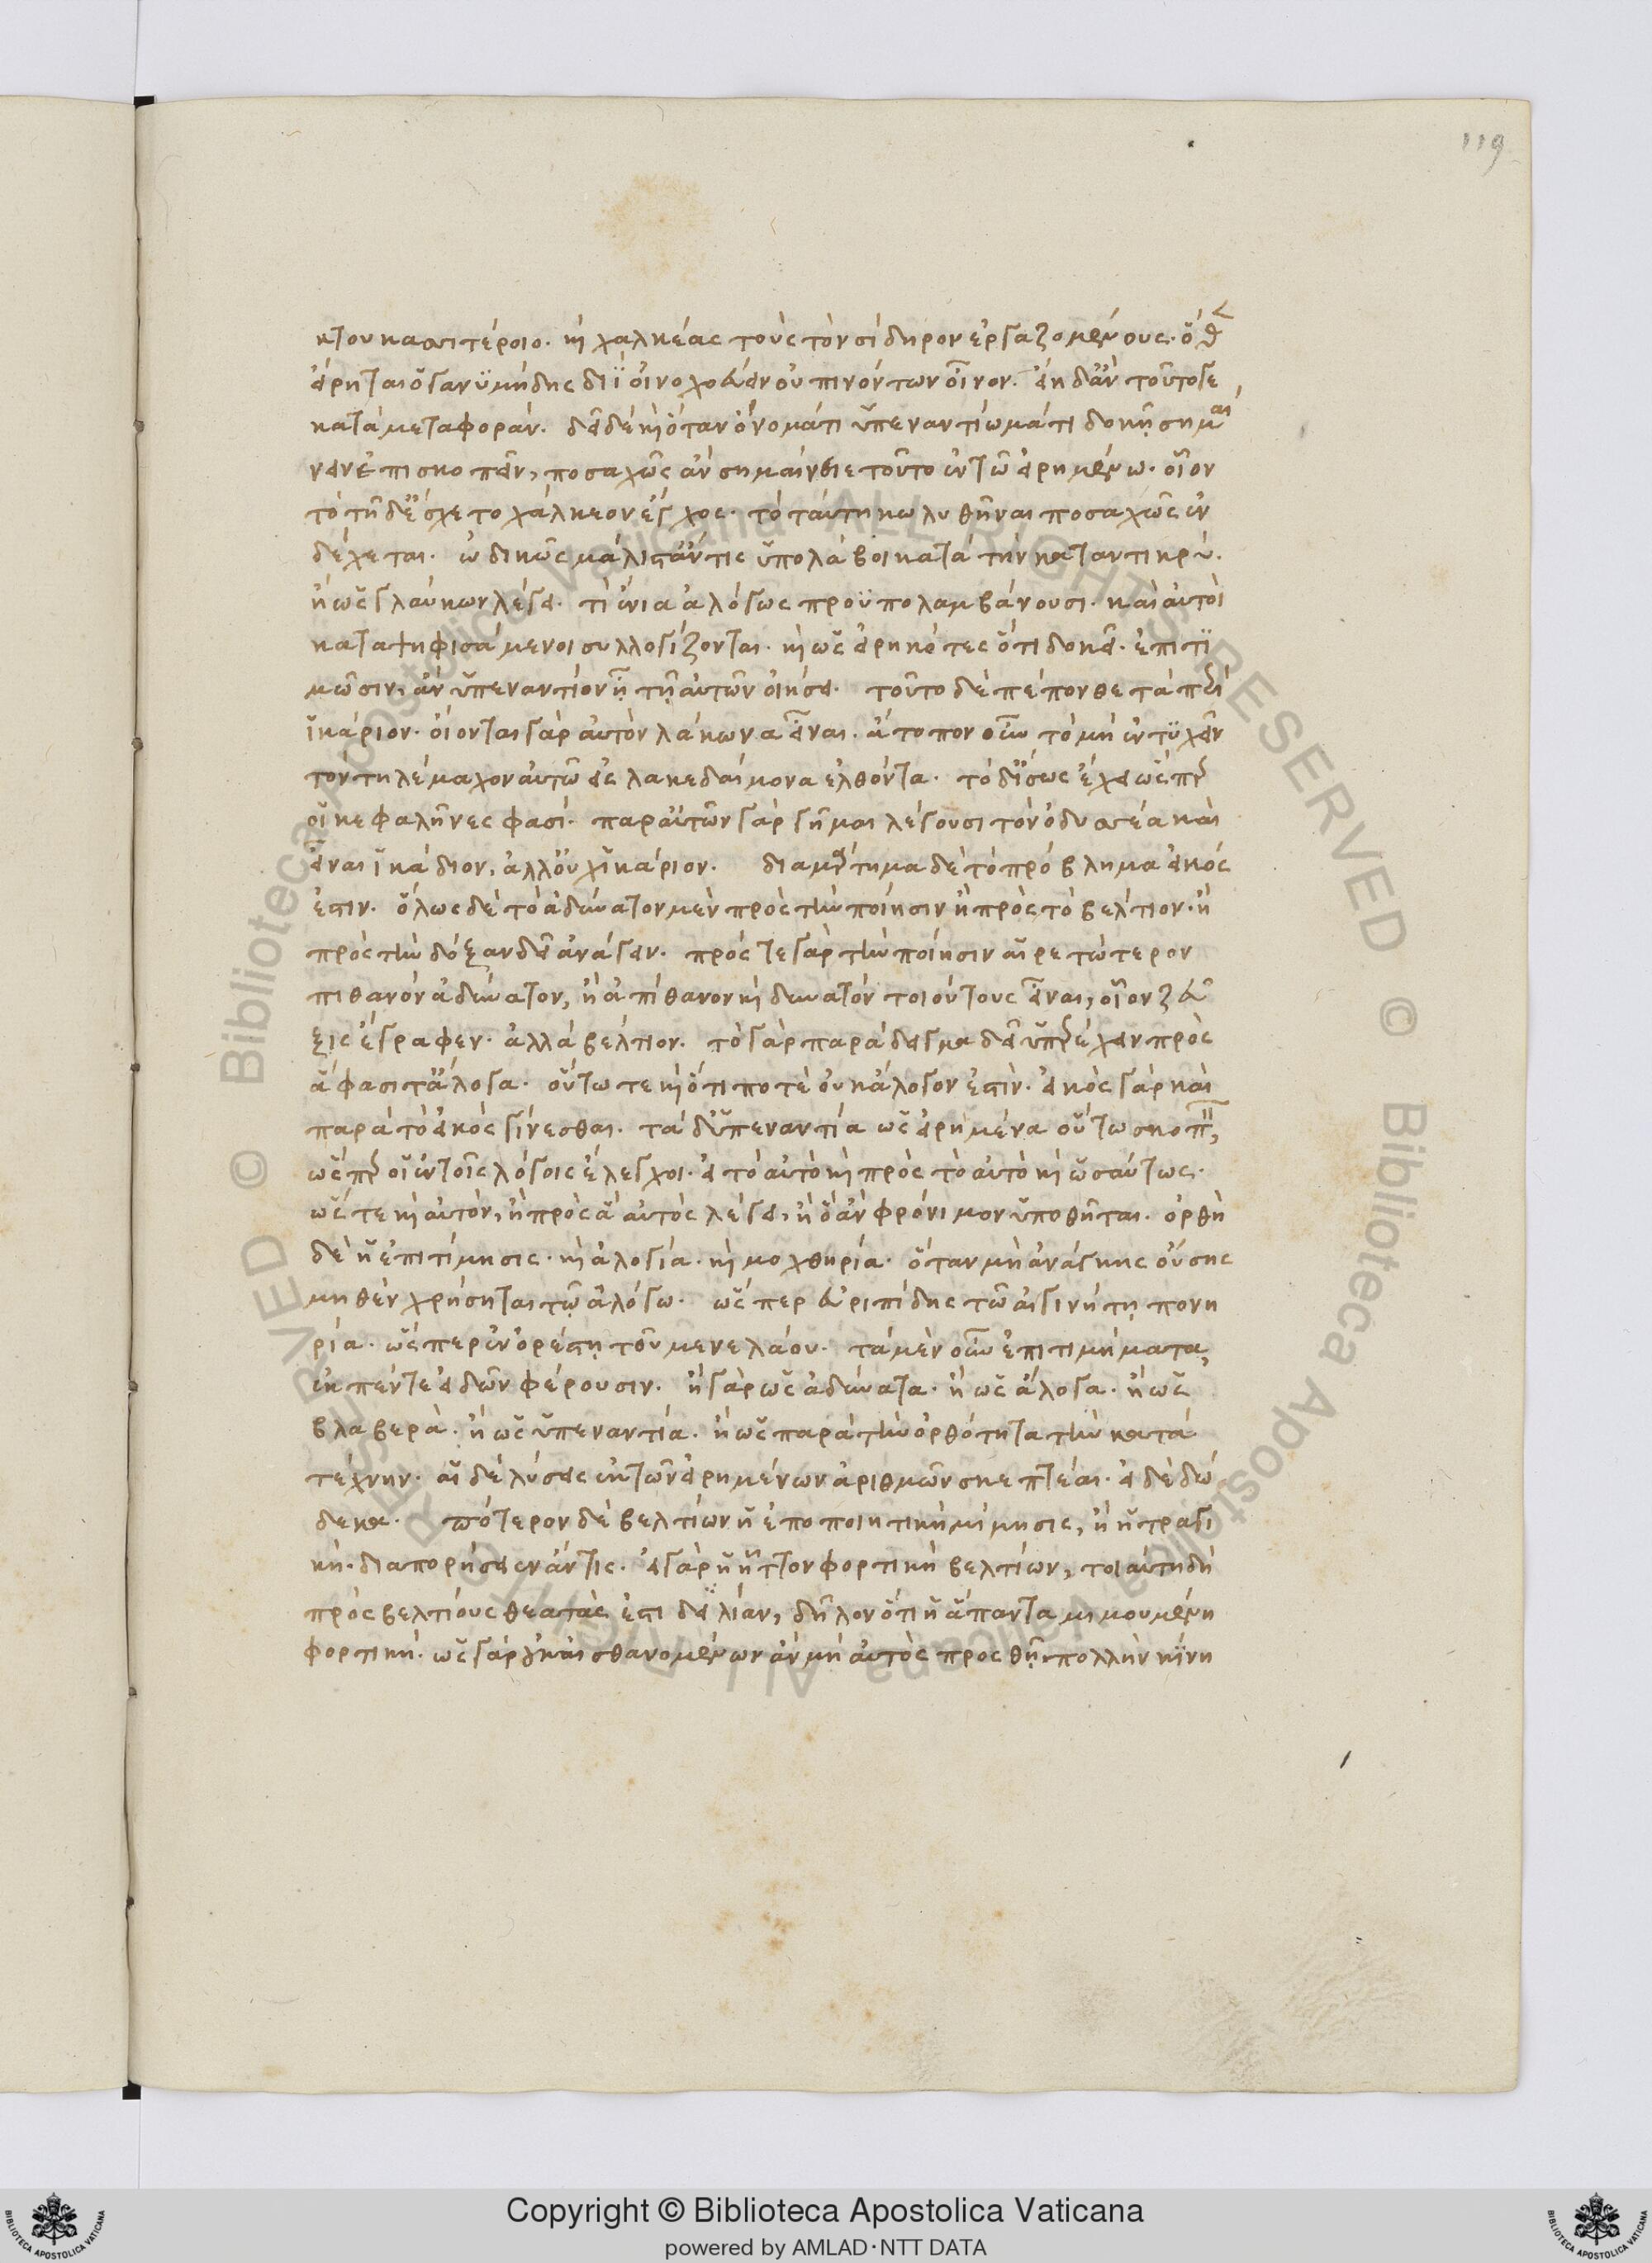 119
κτου κασσιτέροιο. καὶ χαλκέας τοὺς τὸν σίδηρον ἐργαζομένους. ὅθεν
εἴρηται ὁ γανυμήδης διῒ οἰνοχοεύειν οὐ πινόντων οἶνον. εἴη δ' ἂν τοῦτό γε
κατὰ μεταφοράν. δεῖ δὲ καὶ ὅταν ὀνομάτι ὑπεναντιωμάτι δοκῇ σημαί
νειν ἐπισκοπεῖν, ποσαχῶς ἂν σημαίνοιε τοῦτο ἐν τῷ εἰρημένω. οἷον
τὸ τῇ δ' ἔσχετο χάλκεον ἔγχος. τὸ ταύτη κωλυθῆναι ποσαχῶς ἐν
δέχεται. ὡδικῶς μάλιστ' ἄν τις ὑπολάβοι κατὰ τὴν καταντικρύ.
ἢ ὡς γλαύκων λέγει. τὶ ἔνια ἀλόγως προϋπολαμβάνουσι. καὶ αὐτοὶ
καταψηφισάμενοι συλλογίζονται. καὶ ὡς εἰρηκότες ὅτι δοκεῖ. ἐπιτι
μῶσιν, ἂν ὑπεναντίον ᾖ τῇ αὑτῶν οἰήσει. τοῦτο δὲ πέπονθε τὰ περὶ
ἰκάριον. οἴονται γὰρ αὐτὸν λάκωνα εἶναι. ἄτοπον οὖν τὸ μὴ ἐντυχεῖν
τὸν τηλέμαχον αὐτῶ εἰς λακεδαίμονα ἐλθόντα. τὸ δ' ἴσως ἔχει ὥσπερ
οἱ κεφαλῆνές φασί. παρ' αὑτῶν γὰρ γῆμαι λέγουσι τὸν ὀδυσσέα καὶ
εἶναι ἰκάδιον, ἀλλ' οὐχ ἰκάριον. διαμάρτημα δὲ τὸ πρόβλημα εἰκός
ἐστιν. ὅλως δὲ τὸ ἀδύνατον μὲν πρὸς τὴν ποίησιν ἢ πρὸς τὸ βέλτιον. ἢ
πρὸς τὴν δόξαν δεῖ ἀνάγειν. πρός τε γὰρ τὴν ποίησιν αἱρετώτερον
πιθανὸν ἀδύνατον, ἢ ἀπίθανον καὶ δυνατόν τοιούτους εἶναι, οἷον ζεῦ
ξις ἔγραφεν. ἀλλὰ βέλτιον. τὸ γὰρ παράδειγμα δεῖ ὑπερέχειν πρὸς
ἅ φασι τἄλογα. οὕτω τε καὶ ὅτι ποτὲ οὐκ ἄλογον ἐστίν. εἰκὸς γὰρ καὶ
παρὰ τὸ εἰκὸς γίνεσθαι. τὰ δ' ὑπεναντία ὡς εἰρημένα οὕτω σκοπεῖν,
ὥσπερ οἱ ἐν τοῖς λόγοις ἔλεγχοι. εἰ τὸ αὐτὸ καὶ πρὸς τὸ αὐτὸ καὶ ὡσαύτως.
ὥστε καὶ αὐτὸν, ἢ πρὸς ἃ αὐτὸς λέγει, ἢ ὃ ἂν φρόνιμον ὑποθῆται. ὀρθὴ
δὲ ἡ ἐπιτίμησις. καὶ ἀλογία. καὶ μοχθηρία. ὅταν μὴ ἀνάγκης οὔσης
μηθὲν χρήσηται τῷ ἀλόγω. ὥσπερ εὐριπίδης τῶ αἰγινήτῃ πονη
ρία. ὥσπερ ἐν ὀρέστῃ τοῦ μενελάου. τὰ μὲν οὖν ἐπιτιμήματα,
ἐκ πέντε εἰδῶν φέρουσιν. ἢ γὰρ ὡς ἀδύνατα. ἢ ὡς ἄλογα. ἢ ὡς
βλαβερὰ. ἢ ὡς ὑπεναντία. ἢ ὡς παρὰ τὴν ὀρθότητα τὴν κατὰ
τέχνην. αἱ δὲ λύσεις ἐκ τῶν εἰρημένων ἀριθμῶν σκεπτέαι. εἰ δὲ δώ
δεκα. πότερον δὲ βελτίων ἡ ἐποποιητικὴ μίμησις, ἢ ἡ τραγι
κὴ. διαπορήσειεν ἄν τις. εἰ γὰρ ἡ ἧττον φορτικὴ βελτίων, τοιαύτη δὴ
πρὸς βελτίους θεατάς ἐστι δειλίαν, δῆλον ὅτι ἡ ἅπαντα μιμουμένη
φορτική. ὡς γὰρ οὐκ αἰσθανομένων ἂν μὴ αὐτὸς προσθῇ, πολλὴν κίνη
© Biblioteca Apostolica Vaticana ALL RIGHTS RESERVED
© Biblioteca Apostolica Vaticana ALL RIGHTS RESERVED
Copyright © Biblioteca Apostolica Vaticana
powered by AMLAD·NTT DATA
BIBLIOTECA APOSTOLICA VATICANA
BIBLIOTECA APOSTOLICA VATICANA